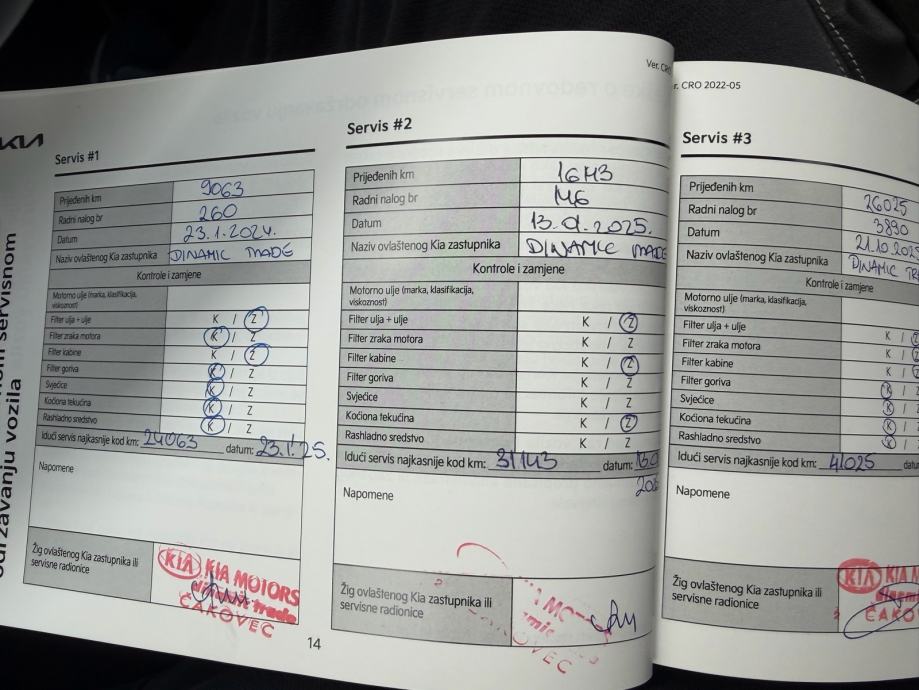 KIA
održavanju vozila
servisnom
Ver. CRO
Servis #1
Prijeđenih km 9063
Radni nalog br 260
Datum 23.1.2024.
Naziv ovlaštenog Kia zastupnika DINAMIC TRADE
Kontrole i zamjene
Motorno ulje (marka, klasifikacija, viskoznost)
Filter ulja + ulje K / Z
Filter zraka motora K / Z
Filter kabine K / Z
Filter goriva K / Z
Svjećice K / Z
Kočiona tekućina K / Z
Rashladno sredstvo K / Z
Idući servis najkasnije kod km: 24063 datum: 23.1.25.
Napomene
Žig ovlaštenog Kia zastupnika ili
servisne radionice
KIA KIA MOTORS
dinamic trade
ČAKOVEC
14
Servis #2
Prijeđenih km 16143
Radni nalog br 146
Datum 13.01.2025.
Naziv ovlaštenog Kia zastupnika DINAMIC TRADE
Kontrole i zamjene
Motorno ulje (marka, klasifikacija,
viskoznost)
Filter ulja + ulje K / Z
Filter zraka motora K / Z
Filter kabine K / Z
Filter goriva K / Z
Svjećice K / Z
Kočiona tekućina K / Z
Rashladno sredstvo K / Z
Idući servis najkasnije kod km: 31143 datum:
Napomene
Žig ovlaštenog Kia zastupnika ili
servisne radionice
r. CRO 2022-05
Servis #3
Prijeđenih km 26025
Radni nalog br 3890
Datum 21.10.2025
Naziv ovlaštenog Kia zastupnika DINAMIC TR
Kontrole i zamjene
Motorno ulje (marka, klasifikacija,
viskoznost)
Filter ulja + ulje K /
Filter zraka motora K /
Filter kabine K /
Filter goriva K /
Svjećice K /
Kočiona tekućina K /
Rashladno sredstvo K /
Idući servis najkasnije kod km: 41025 datu
Napomene
Žig ovlaštenog Kia zastupnika ili
servisne radionice
KIA KIA M
ČAKO